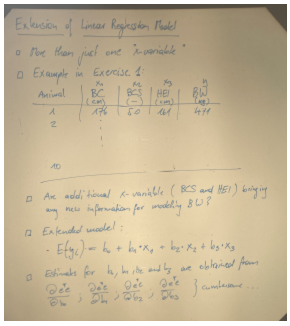 Extension of Linear Regression Model
□ More than just one "x-variable"
□ Example in Exercise 1:
x₁ x₂ x₃ y
Animal | BC | BCS | HEI | BW
(cm) (-) (cm) (kg)
1 176 50 161 471
2
10
□ Are additional x-variable (BCS and HEI) bringing
any new information for modeling BW?
□ Extended model:
- E(yᵢ) = b₀ + b₁·x₁ + b₂·x₂ + b₃·x₃
□ Estimates for b₀, b₁, b₂ and b₃ are obtained from
∂eᵀe ; ∂eᵀe ; ∂eᵀe ; ∂eᵀe }
∂b₀ ∂b₁ ∂b₂ ∂b₃